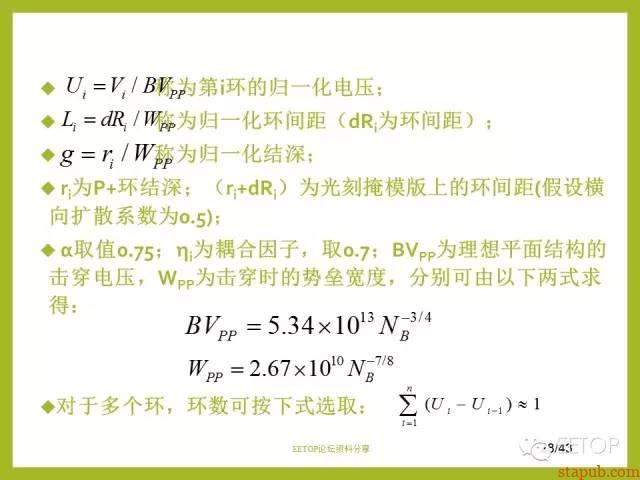 ◆ U_i = V_i / BV_PP 称为第i环的归一化电压；
◆ L_i = dR_i / W_PP 称为归一化环间距（dR_i为环间距）；
◆ g = r_i / W_PP 称为归一化结深；
◆ r_i为P+环结深；（r_i+dR_i）为光刻掩模版上的环间距(假设横
向扩散系数为0.5)；
◆ α取值0.75；η_i为耦合因子，取0.7；BV_PP为理想平面结构的
击穿电压，W_PP为击穿时的势垒宽度，分别可由以下两式求
得：
BV_PP = 5.34×10^13 N_B^-3/4
W_PP = 2.67×10^10 N_B^-7/8
◆对于多个环，环数可按下式选取： ∑_{i=1}^{n} (U_i − U_{i−1}) ≈ 1
EETOP论坛资料分享
EETOP
/43
stapub.com